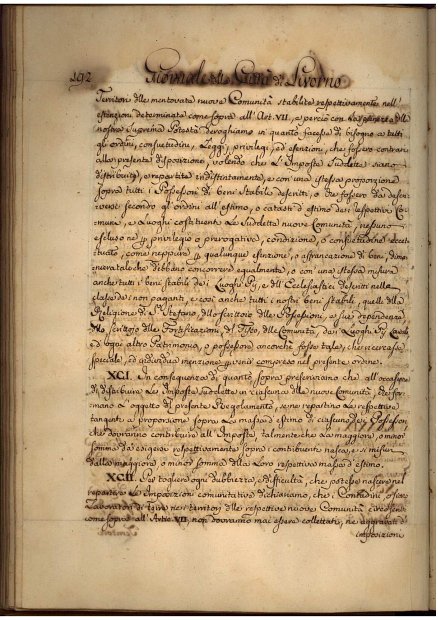 192 Giornale della Città di Livorno
Territori delle mentovate nuove Comunità stabilite respettivamente nell'
estenzioni determinate come sopra all' Art. VII, e perciò con la
nostra Suprema Potestà deroghiamo in quanto facesse di bisogno a tutti
gli ordini, consuetudini, Leggi, privilegi, ed esenzioni, che fossero contrari
alla presente disposizione, volendo che L'Imposte Suddette siano
distribuite, e repartite indistintamente, e con una stessa proporzione
sopra tutti i Possessori di beni stabili descritti, o che fossero da descri-
versi secondo gli ordini all' estimo, o catasti d'estimo de respettivi Co-
muni, e Luoghi costituenti Le Suddette nuove Comunità, nessuno
escluso ne p privilegio o prerogativa, condizione, o consuetudine
come neppure p qualunque esenzione, o affrancazione di beni,
che debbano concorrere egualmente, o con una stessa misura
anche tutti i beni stabili de Luoghi Pij, e dell' Ecclesiastici descritti nella
classe de i non paganti, e così anche tutti i nostri beni stabili, quelli della
Religione di S. Stefano, dello scrittoio delle Possessioni, e sue dependenze
dello scrittoio delle Fortificazioni, del Fisco, delle Comunità, dei Luoghi Pij Laicali
ed ogni altro Patrimonio, o possessore ancorchè fosse tale, che ricercasse
speciale, ed individua menzione p venir compreso nel presente ordine.
XCI. In consequenza di quanto sopra prescriviamo che all' occasione
di distribuire Le Imposte suddette in ciascuna delle nuove Comunità che for-
mano L'oggetto del presente Regolamento, se ne repartino Le respettive
tangenti a proporzione sopra La massa d'estimo di ciascuno dei Possessori
che dovranno contribuire all' Imposte, talmente che La maggiore, o minor
somma da esigersi respettivamente sopra i contribuenti nasca, e si misuri
dalla maggiore, o minor somma della Loro respettiva massa d'estimo.
XCII. Per togliere ogni dubbiezza, e difficultà, che potesse nascere nel
repartire Le Imposizioni comunitative dichiariamo, che i Contadini, o siano
Lavoratori di terre nei territori delle respettive nuove Comunità circoscritte
come sopra all' Artic. VII, non dovranno mai essere collettati, ne aggravati d'
imposizione